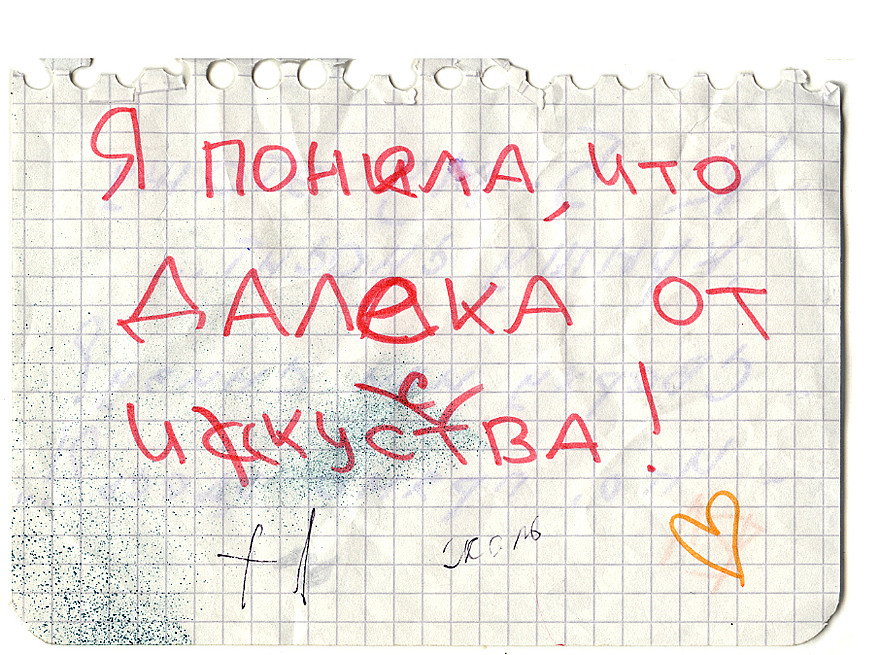 Я ПОНеЛА, ЧТО
ДАЛеКА ОТ
ИсКУСтВА!
+1